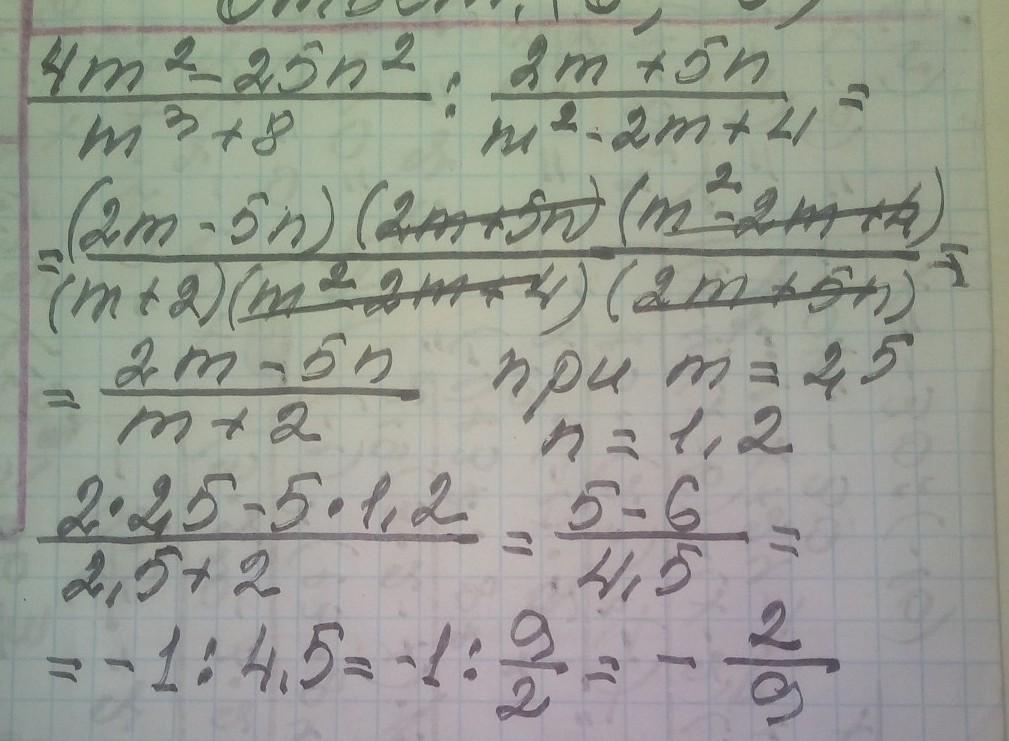 4m² - 25n² / m³ + 8 : 2m + 5n / m² - 2m + 4 =
= (2m - 5n) (2m + 5n) (m² - 2m + 4) / (m + 2) (m² - 2m + 4) (2m + 5n) =
= 2m - 5n / m + 2 при m = 2,5
n = 1,2
2 · 2,5 - 5 · 1,2 / 2,5 + 2 = 5 - 6 / 4,5 =
= -1 : 4,5 = -1 : 9/2 = - 2/9